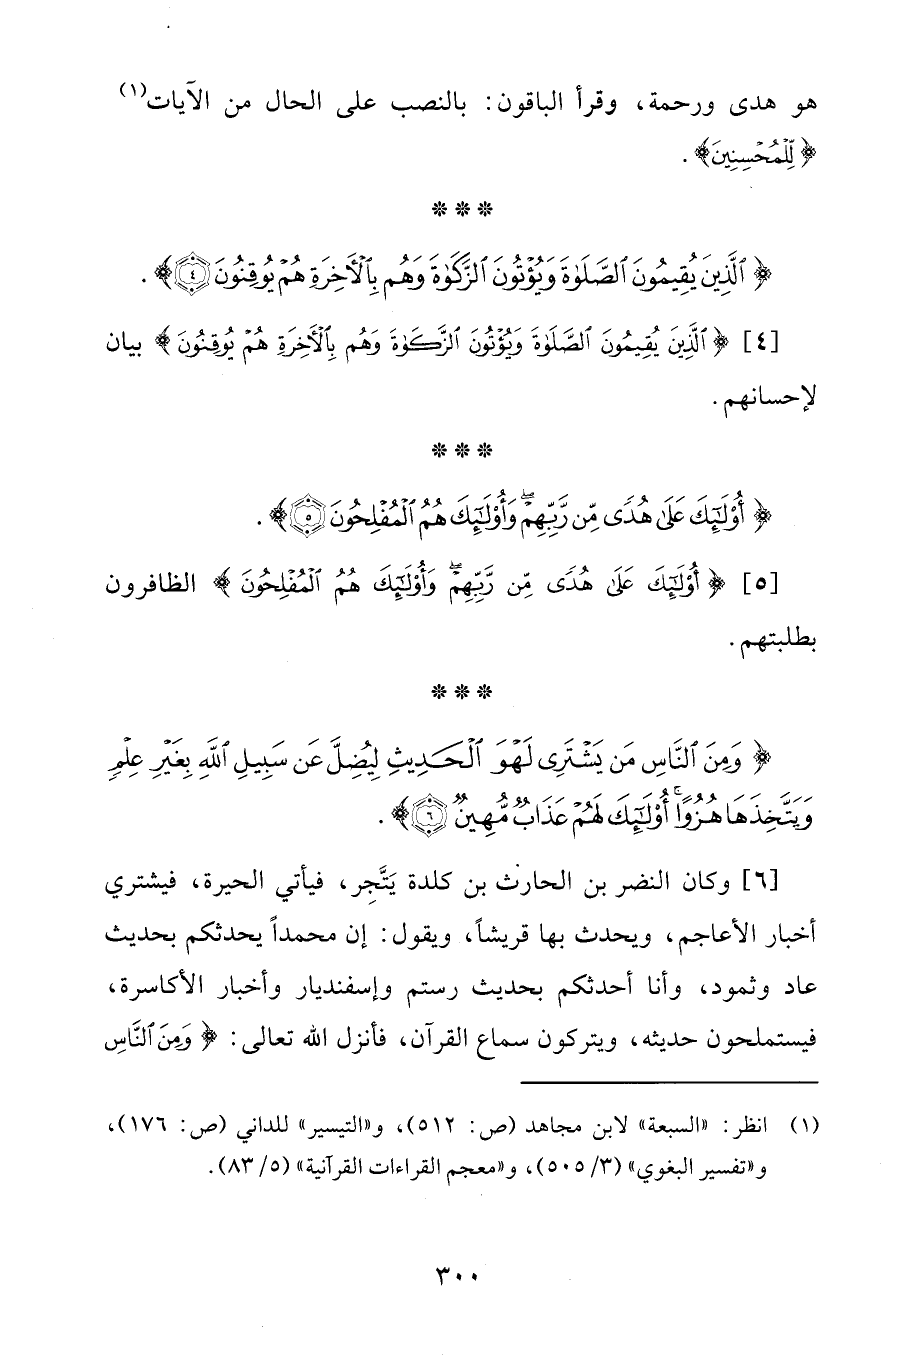 هو هدى ورحمة، وقرأ الباقون: بالنصب على الحال من الآيات(١)
﴿لِّلْمُحْسِنِينَ﴾.
* * *
﴿الَّذِينَ يُقِيمُونَ الصَّلَوٰةَ وَيُؤْتُونَ الزَّكَوٰةَ وَهُم بِالْأَخِرَةِ هُمْ يُوقِنُونَ ٤﴾.
[٤] ﴿الَّذِينَ يُقِيمُونَ الصَّلَوٰةَ وَيُؤْتُونَ الزَّكَوٰةَ وَهُم بِالْأَخِرَةِ هُمْ يُوقِنُونَ﴾ بيان
لإحسانهم.
* * *
﴿أُوْلَٰٓئِكَ عَلَىٰ هُدًى مِّن رَّبِّهِمْۖ وَأُوْلَٰٓئِكَ هُمُ الْمُفْلِحُونَ ٥﴾.
[٥] ﴿أُوْلَٰٓئِكَ عَلَىٰ هُدًى مِّن رَّبِّهِمْۖ وَأُوْلَٰٓئِكَ هُمُ الْمُفْلِحُونَ﴾ الظافرون
بطلبتهم.
* * *
﴿وَمِنَ النَّاسِ مَن يَشْتَرِى لَهْوَ الْحَدِيثِ لِيُضِلَّ عَن سَبِيلِ اللَّهِ بِغَيْرِ عِلْمٍ
وَيَتَّخِذَهَا هُزُوًاۚ أُوْلَٰٓئِكَ لَهُمْ عَذَابٌ مُّهِينٌ ٦﴾.
[٦] وكان النضر بن الحارث بن كلدة يَتَّجِر، فيأتي الحيرة، فيشتري
أخبار الأعاجم، ويحدث بها قريشاً، ويقول: إن محمداً يحدثكم بحديث
عاد وثمود، وأنا أحدثكم بحديث رستم وإسفنديار وأخبار الأكاسرة،
فيستملحون حديثه، ويتركون سماع القرآن، فأنزل الله تعالى: ﴿وَمِنَ النَّاسِ
(١) انظر: «السبعة» لابن مجاهد (ص: ٥١٢)، و«التيسير» للداني (ص: ١٧٦)،
و«تفسير البغوي» (٣/ ٥٠٥)، و«معجم القراءات القرآنية» (٥/ ٨٣).
٣٠٠